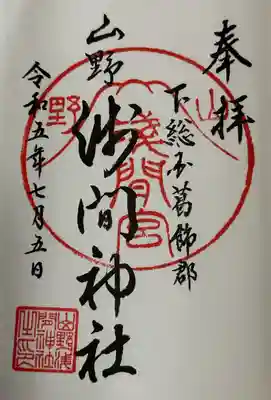 奉拝
下総国葛飾郡
山野
浅間神社
令和五年七月五日
山野
浅間宮
山野浅
間神社
之印